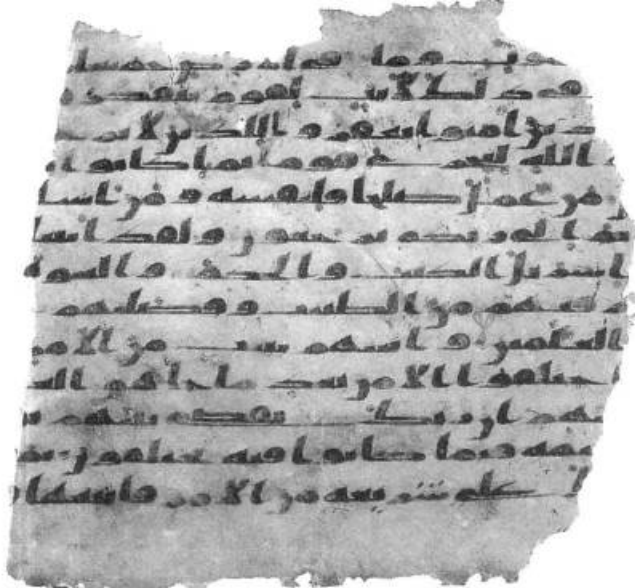 ـموت وما في الارض جميعا
ـذلك لايت لقوم يتفكرو
ـذين امنوا يغفروا للذين لا يرجـ
ـم الله ليجزي قوما بما كانوا يـ
من عمل صلحا فلنفسه ومن اسا
ـم الى ربكم ترجعون ولقد اتينا
اسريل الكتب والحكم والنبو
ـقنهم من الطيبت وفضلنهم
العلمين واتينهم بينت من الامر
ختلفوا الا من بعد ما جاهم العـ
ـنهم ان ربك يقضي بينهم يـ
ـقيمه فيما كانوا فيه يختلفون ثم
على شريعه من الامر فاتبعها و